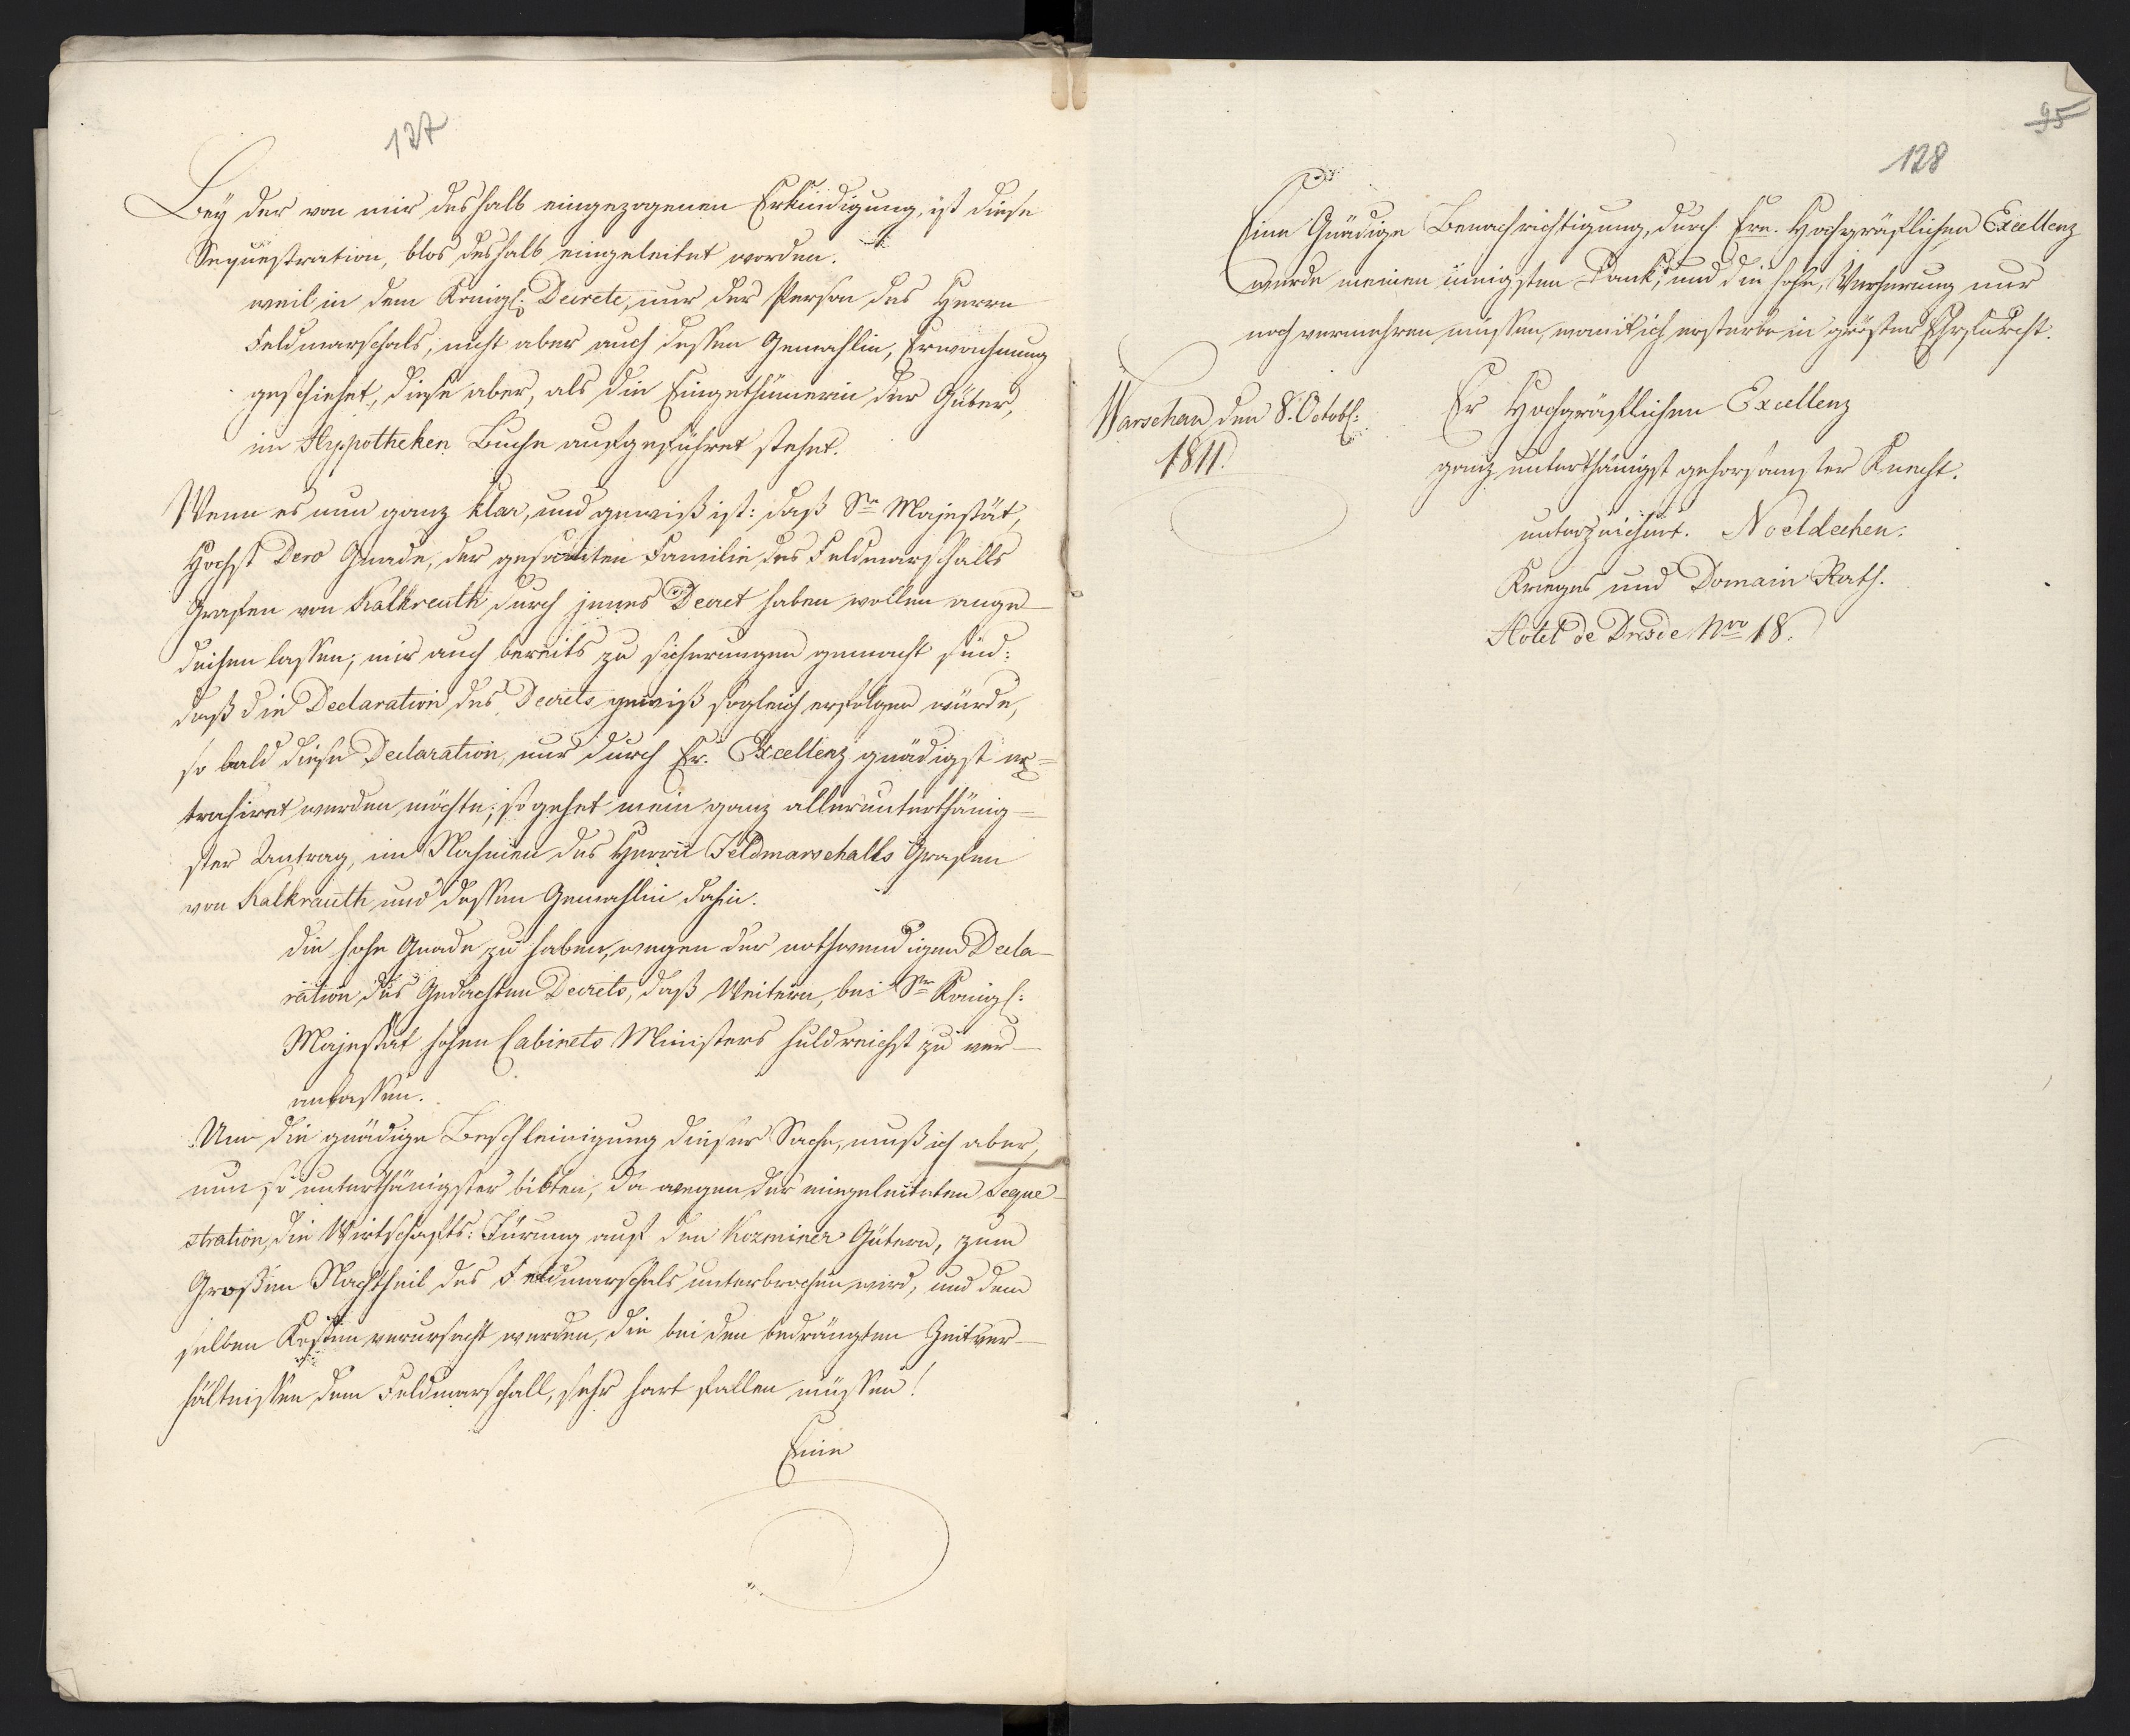 127
Bey der von mir deshalb eingezogenen Erkundigung, ist diese
Sequestration, blos deshalb eingeleitet worden.
weil in dem Königl: Decrete, nur der Person des Herrn
Feldmarschals, nicht aber auch dessen Gemahlin, Erwaehnung
geschiehet, diese aber, als die Eingethümerin der Güter,
im Hyppotheken Buche aufgeführet stehet.
Wenn es nun ganz klar, und gewiß ist: daß Sr Majestät,
Hochst Dero Gnade, der gesamten Familie des Feldmarschalls
Grafen von Kalkreuth durch jenes Decret haben wollen ange-
deihen lassen; mir auch bereits zu sicherungen gemacht sind:
daß die Declaration des Decrets gewiß sogleich erfolgen würde,
so bald diese Declaration, nur durch Er. Excellenz gnädigst ex=
trahiret werden möchte; so gehet mein ganz allerunterthänig=
ster Antrag, im Nahmen des Herrn Feldmarschalls Grafen
von Kalkreuth und dessen Gemahlin dahin.
die hohe Gnade zu haben, wegen der nothwendigen Decla-
ration des Gedachten Decrets, daß Weitere, bei Sr Königl:
Majestät hohen Cabinets Ministers huldreichst zu ver-
anlassen.
Um die gnädige Beschleinigung dieser Sache, muß ich aber,
um so unterthänigster bitten, da wegen der eingeleiteten Seque-
stration, die Wirthschafts: Fürung auf den Kozminer Gütern, zum
Großen Nachtheil des Feldmarschals unterbrochen wird, und dem
selben Kosten verursacht werden, die bei den bedrängten Zeitver-
hältnissen dem Feldmarschall, sehr hart fallen müssen!
Eine
95
128
Eine Gnädige Benachrichtigung, durch Ere. Hochgräflichen Excellenz
wurde meinen innigsten Dank, und die hohe, Verherung nur
noch vermehren müssen, womit ich ersterbe in gröster Ehrfurcht.
Er Hochgräflichen Excellenz
Warschau den 8. Octobl:
1811.
ganz unterthänigst gehorsamster Knecht.
unterzeichnet. Noeldechen.
Krieges und Domain Rath.
Hotel de Dresde Nro 18.